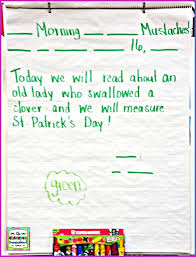 __ Morning __ Mustaches
__ __ 16, __
Today we will read about an
old lady who swallowed a
clover and we will measure
St. Patrick's Day!
green